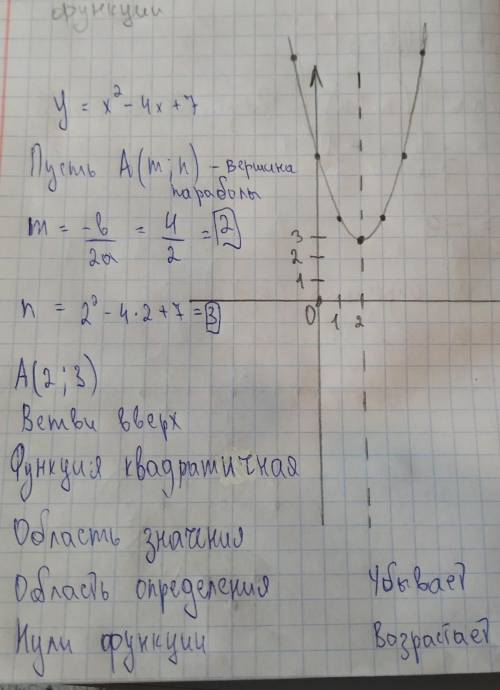 функции
y = x² - 4x + 7
Пусть A(m; n) - вершина
параболы
m = -b/2a = 4/2 = 2
n = 2² - 4·2 + 7 = 3
A(2; 3)
Ветви вверх
Функция квадратичная
Область значения
Область определения
Нули функции
Убывает
Возрастает
3
2
1
0 1 2